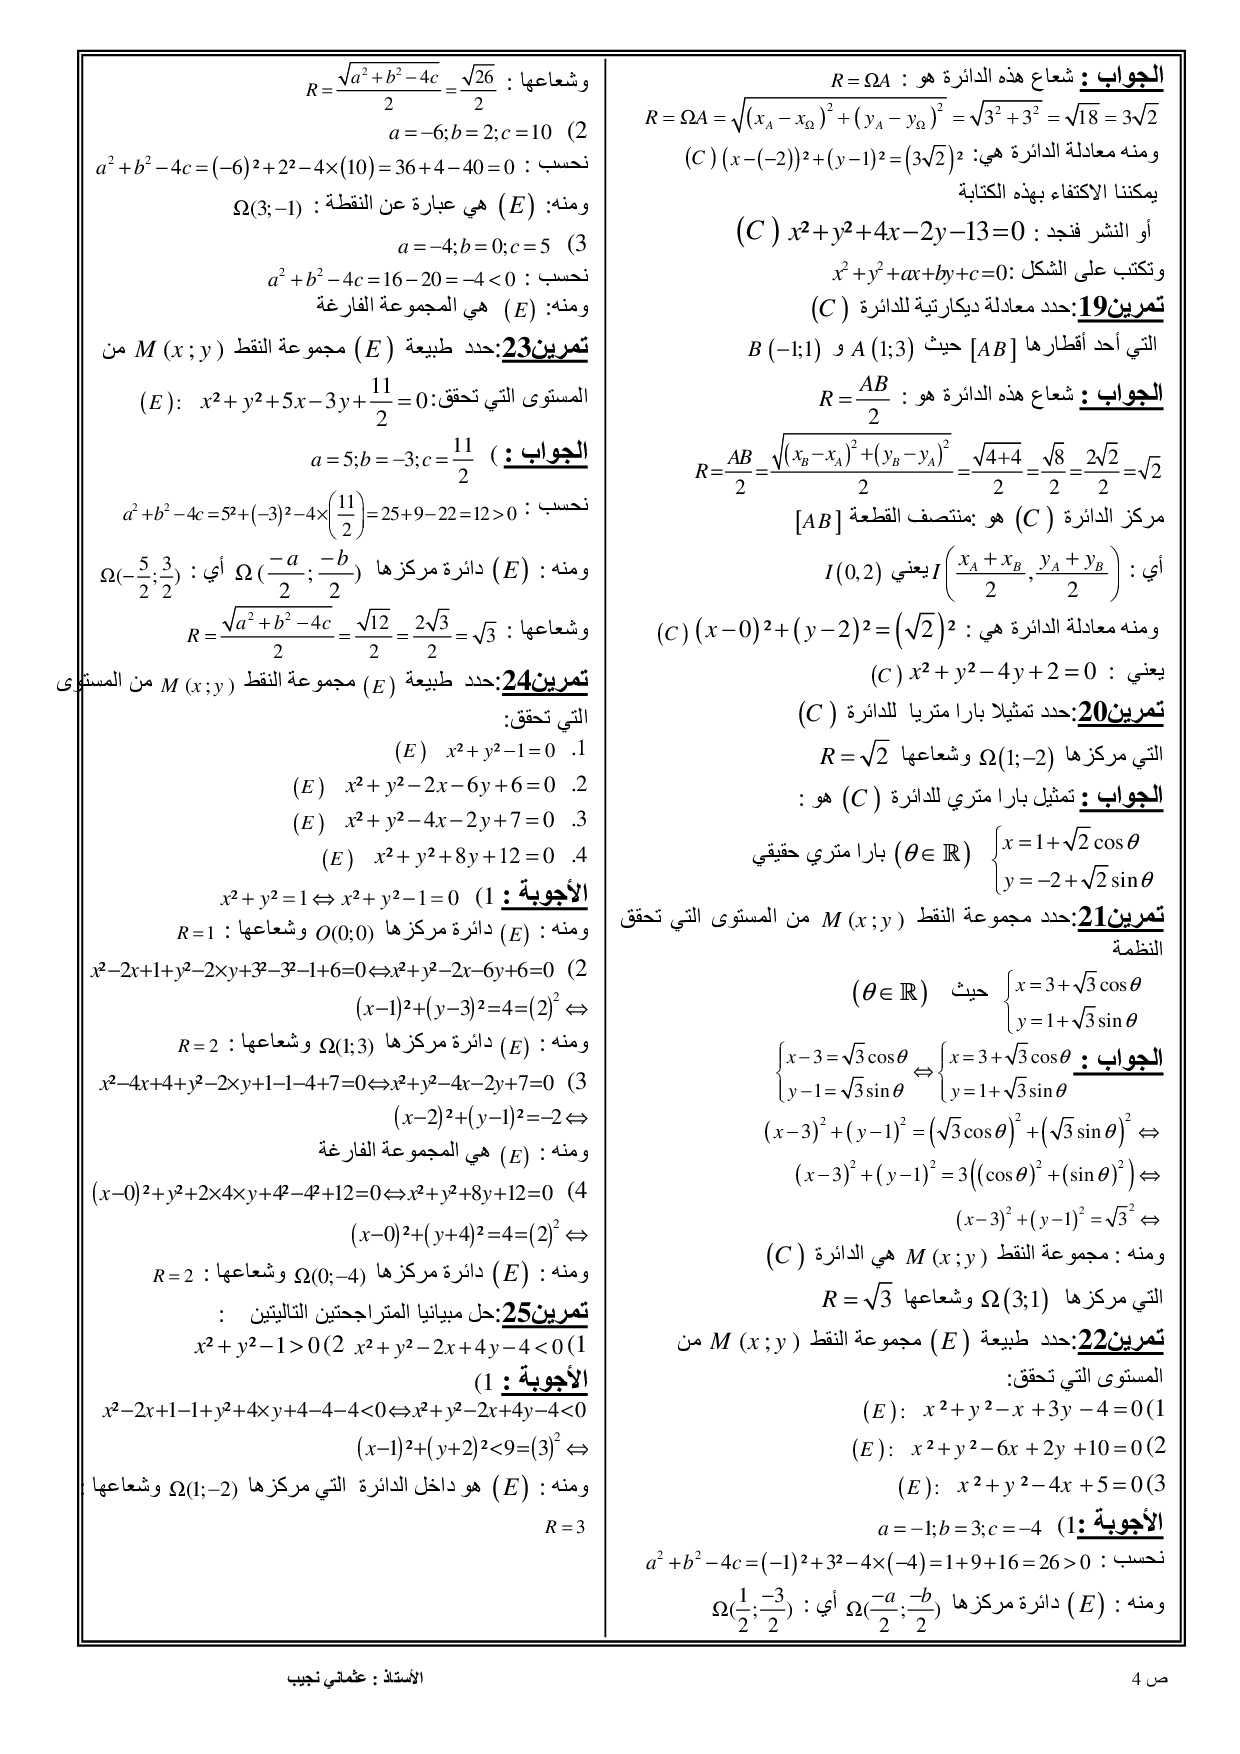 الجواب : شعاع هذه الدائرة هو : R = ΩA
R = ΩA = √((x_A − x_Ω)² + (y_A − y_Ω)²) = √(3² + 3²) = √18 = 3√2
ومنه معادلة الدائرة هي: (C) (x − (−2))² + (y − 1)² = (3√2)²
يمكننا الاكتفاء بهذه الكتابة
أو النشر فنجد : (C) x² + y² + 4x − 2y − 13 = 0
وتكتب على الشكل : x² + y² + ax + by + c = 0
تمرين19:حدد معادلة ديكارتية للدائرة (C)
التي أحد أقطارها [AB] حيث A(1;3) و B(−1;1)
الجواب : شعاع هذه الدائرة هو : R = AB/2
R = AB/2 = √((x_B − x_A)² + (y_B − y_A)²)/2 = √(4+4)/2 = √8/2 = 2√2/2 = √2
مركز الدائرة (C) هو :منتصف القطعة [AB]
أي : I((x_A + x_B)/2 , (y_A + y_B)/2) يعني I(0,2)
ومنه معادلة الدائرة هي : (C) (x − 0)² + (y − 2)² = (√2)²
يعني : (C) x² + y² − 4y + 2 = 0
تمرين20:حدد تمثيلا بارا متريا للدائرة (C)
التي مركزها Ω(1;−2) وشعاعها R = √2
الجواب : تمثيل بارا متري للدائرة (C) هو :
{ x = 1 + √2 cos θ ; y = −2 + √2 sin θ (θ ∈ ℝ) بارا متري حقيقي
تمرين21:حدد مجموعة النقط M(x;y) من المستوى التي تحقق
النظمة
{ x = 3 + √3 cos θ ; y = 1 + √3 sin θ حيث (θ ∈ ℝ)
الجواب : { x = 3 + √3 cos θ ; y = 1 + √3 sin θ ⇔ { x − 3 = √3 cos θ ; y − 1 = √3 sin θ
⇔ (x − 3)² + (y − 1)² = (√3 cos θ)² + (√3 sin θ)²
⇔ (x − 3)² + (y − 1)² = 3((cos θ)² + (sin θ)²)
⇔ (x − 3)² + (y − 1)² = √3²
ومنه : مجموعة النقط M(x;y) هي الدائرة (C)
التي مركزها Ω(3;1) وشعاعها R = √3
تمرين22:حدد طبيعة (E) مجموعة النقط M(x;y) من
المستوى التي تحقق:
1) (E): x² + y² − x + 3y − 4 = 0
2) (E): x² + y² − 6x + 2y + 10 = 0
3) (E): x² + y² − 4x + 5 = 0
الأجوبة :1) a = −1; b = 3; c = −4
نحسب : a² + b² − 4c = (−1)² + 3² − 4×(−4) = 1 + 9 + 16 = 26 > 0
ومنه : (E) دائرة مركزها Ω(−a/2 ; −b/2) أي : Ω(1/2 ; −3/2)
وشعاعها : R = √(a² + b² − 4c)/2 = √26/2
2) a = −6; b = 2; c = 10
نحسب : a² + b² − 4c = (−6)² + 2² − 4×(10) = 36 + 4 − 40 = 0
ومنه: (E) هي عبارة عن النقطة : Ω(3;−1)
3) a = −4; b = 0; c = 5
نحسب : a² + b² − 4c = 16 − 20 = −4 < 0
ومنه: (E) هي المجموعة الفارغة
تمرين23:حدد طبيعة (E) مجموعة النقط M(x;y) من
المستوى التي تحقق: (E): x² + y² + 5x − 3y + 11/2 = 0
الجواب : ) a = 5; b = −3; c = 11/2
نحسب : a² + b² − 4c = 5² + (−3)² − 4×(11/2) = 25 + 9 − 22 = 12 > 0
ومنه : (E) دائرة مركزها Ω(−a/2 ; −b/2) أي : Ω(−5/2 ; 3/2)
وشعاعها : R = √(a² + b² − 4c)/2 = √12/2 = 2√3/2 = √3
تمرين24:حدد طبيعة (E) مجموعة النقط M(x;y) من المستوى
التي تحقق:
1. (E) x² + y² − 1 = 0
2. (E) x² + y² − 2x − 6y + 6 = 0
3. (E) x² + y² − 4x − 2y + 7 = 0
4. (E) x² + y² + 8y + 12 = 0
الأجوبة : 1) x² + y² = 1 ⇔ x² + y² − 1 = 0
ومنه : (E) دائرة مركزها O(0;0) وشعاعها : R = 1
2) x²−2x+1+y²−2×y+3²−3²−1+6=0⇔x²+y²−2x−6y+6=0
⇔ (x−1)²+(y−3)²=4=(2)²
ومنه : (E) دائرة مركزها Ω(1;3) وشعاعها : R = 2
3) x²−4x+4+y²−2×y+1−1−4+7=0⇔x²+y²−4x−2y+7=0
⇔ (x−2)²+(y−1)²=−2
ومنه : (E) هي المجموعة الفارغة
4) (x−0)²+y²+2×4×y+4²−4²+12=0⇔x²+y²+8y+12=0
⇔ (x−0)²+(y+4)²=4=(2)²
ومنه : (E) دائرة مركزها Ω(0;−4) وشعاعها : R = 2
تمرين25:حل مبيانيا المتراجحتين التاليتين :
1) x² + y² − 2x + 4y − 4 < 0 2) x² + y² − 1 > 0
الأجوبة : 1)
x²−2x+1−1+y²+4×y+4−4−4<0⇔x²+y²−2x+4y−4<0
⇔ (x−1)²+(y+2)²<9=(3)²
ومنه : (E) هو داخل الدائرة التي مركزها Ω(1;−2) وشعاعها :
R = 3
ص 4 الأستاذ : عثماني نجيب